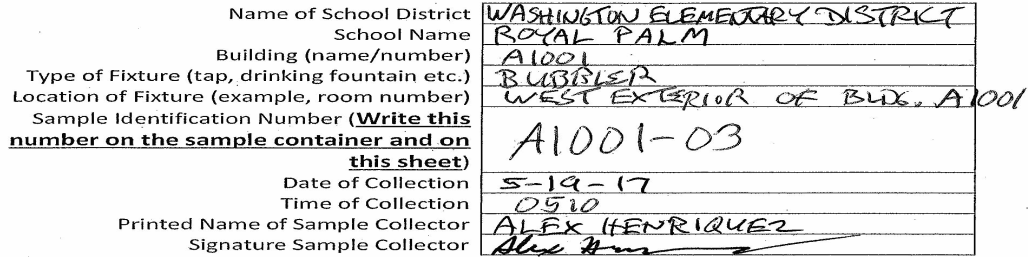 Name of School District WASHINGTON ELEMENTARY DISTRICT
School Name ROYAL PALM
Building (name/number) A1001
Type of Fixture (tap, drinking fountain etc.) BUBBLER
Location of Fixture (example, room number) WEST EXTERIOR OF BLDG. A1001
Sample Identification Number (Write this
number on the sample container and on A1001-03
this sheet)
Date of Collection 5-19-17
Time of Collection 0510
Printed Name of Sample Collector ALEX HENRIQUEZ
Signature Sample Collector Alex